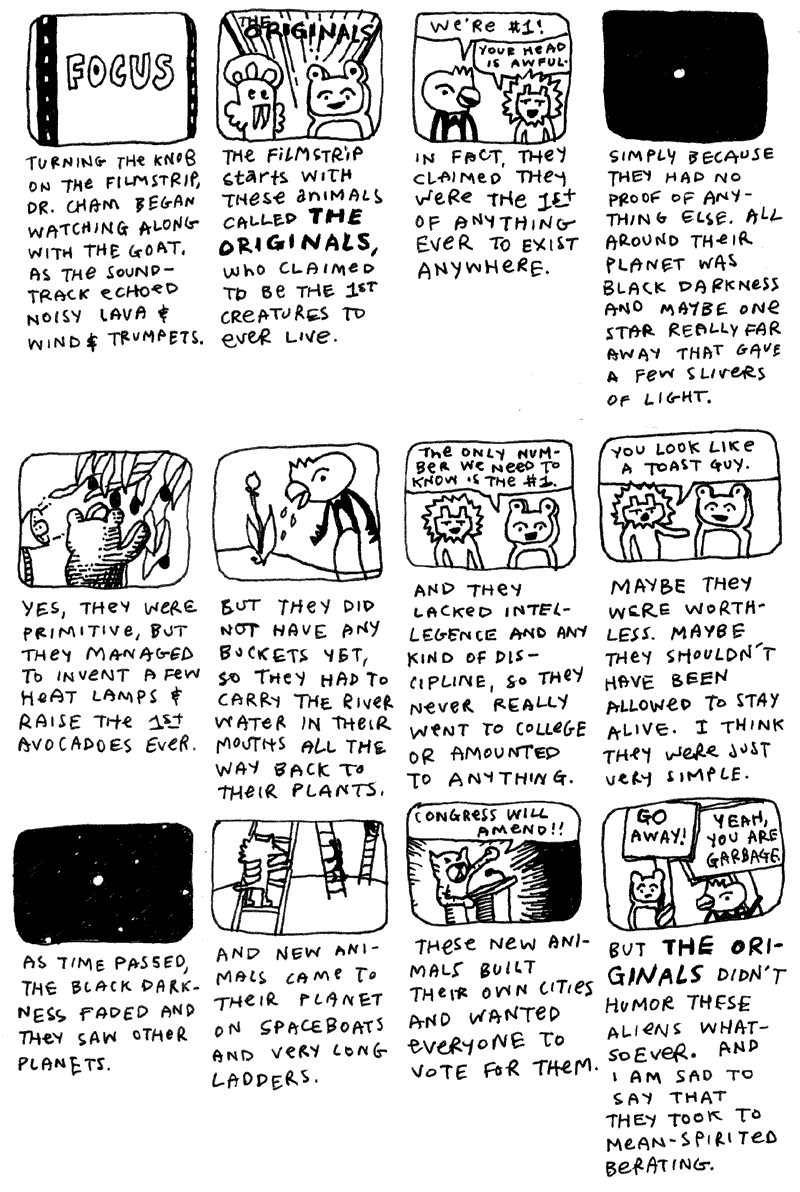 FOCUS
TURNING THE KNOB
ON THE FILMSTRIP,
DR. CHAM BEGAN
WATCHING ALONG
WITH THE GOAT.
AS THE SOUND-
TRACK ECHOED
NOISY LAVA &
WIND & TRUMPETS.
THE
ORIGINALS
THE FILMSTRIP
STARTS WITH
THESE ANIMALS
CALLED THE
ORIGINALS,
WHO CLAIMED
TO BE THE 1ST
CREATURES TO
EVER LIVE.
WE'RE #1!
YOUR HEAD
IS AWFUL.
IN FACT, THEY
CLAIMED THEY
WERE THE 1ST
OF ANYTHING
EVER TO EXIST
ANYWHERE.
SIMPLY BECAUSE
THEY HAD NO
PROOF OF ANY-
THING ELSE. ALL
AROUND THEIR
PLANET WAS
BLACK DARKNESS
AND MAYBE ONE
STAR REALLY FAR
AWAY THAT GAVE
A FEW SLIVERS
OF LIGHT.
YES, THEY WERE
PRIMITIVE, BUT
THEY MANAGED
TO INVENT A FEW
HEAT LAMPS &
RAISE THE 1ST
AVOCADOES EVER.
BUT THEY DID
NOT HAVE ANY
BUCKETS YET,
SO THEY HAD TO
CARRY THE RIVER
WATER IN THEIR
MOUTHS ALL THE
WAY BACK TO
THEIR PLANTS.
THE ONLY NUM-
BER WE NEED TO
KNOW IS THE #1.
AND THEY
LACKED INTEL-
LEGENCE AND ANY
KIND OF DIS-
CIPLINE, SO THEY
NEVER REALLY
WENT TO COLLEGE
OR AMOUNTED
TO ANYTHING.
YOU LOOK LIKE
A TOAST GUY.
MAYBE THEY
WERE WORTH-
LESS. MAYBE
THEY SHOULDN'T
HAVE BEEN
ALLOWED TO STAY
ALIVE. I THINK
THEY WERE JUST
VERY SIMPLE.
AS TIME PASSED,
THE BLACK DARK-
NESS FADED AND
THEY SAW OTHER
PLANETS.
AND NEW ANI-
MALS CAME TO
THEIR PLANET
ON SPACEBOATS
AND VERY LONG
LADDERS.
CONGRESS WILL
AMEND!!
THESE NEW ANI-
MALS BUILT
THEIR OWN CITIES
AND WANTED
EVERYONE TO
VOTE FOR THEM.
GO
AWAY!
YEAH,
YOU ARE
GARBAGE.
BUT THE ORI-
GINALS DIDN'T
HUMOR THESE
ALIENS WHAT-
SOEVER. AND
I AM SAD TO
SAY THAT
THEY TOOK TO
MEAN-SPIRITED
BERATING.